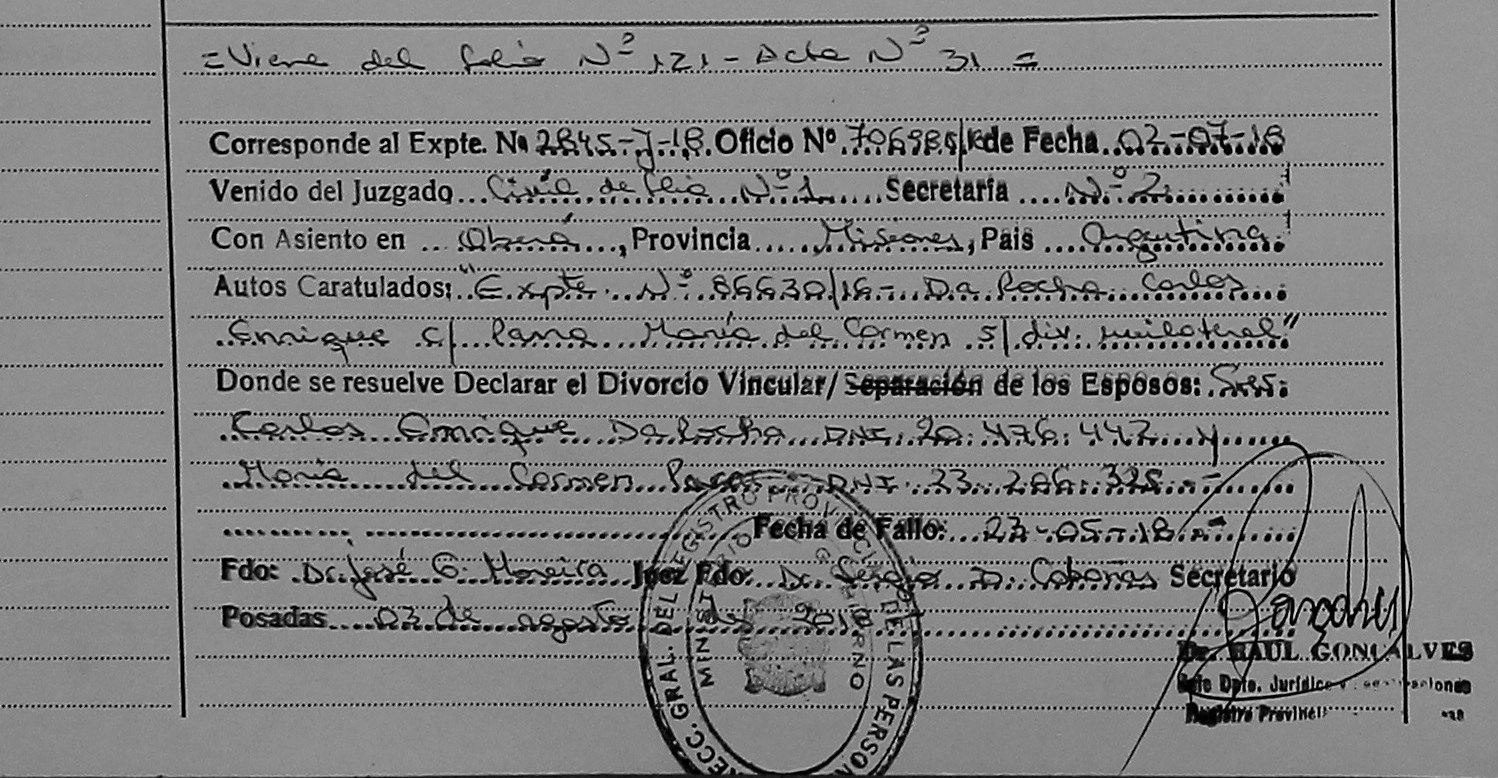 = Viene del folio Nº 121 - Acta Nº 31 =
Corresponde al Expte. No 2845-J-18. Oficio Nº 706985/K de Fecha 02-07-18
Venido del Juzgado Civil de flia Nº 1 Secretaría Nº 2
Con Asiento en Oberá, Provincia Misiones, Pais Argentina
Autos Caratulados: "Expte. Nº 86630/16 - Da Rocha Carlos
Enrique c/ María del Carmen s/ div. unilateral"
Donde se resuelve Declarar el Divorcio Vincular/ Separación de los Esposos: Sres.
Carlos Enrique Da Rocha DNI. 20.476.442 y
María del Carmen DNI. 23.206.328.-
Fecha de Fallo: 23-05-18.-
Fdo: Dr. José G. Moreira Juez Fdo: Dr. Sergio D. Cabañas Secretario
Posadas 03 de agosto de 2018
Dr. RAUL GONÇALVES
Jefe Dpto. Jurídico
Registro Provincial
DIRECC. GRAL. DEL REGISTRO PROVINCIAL DE LAS PERSONAS
MINISTERIO GOBIERNO